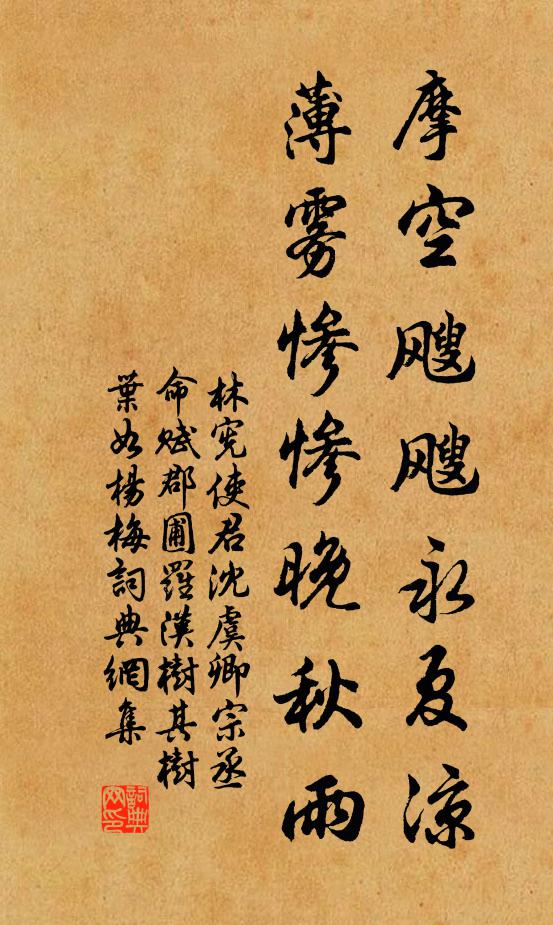 摩空飕飕永夏凉
薄雾惨惨晚秋雨
林宪使君沈虞卿宗丞
命赋郡圃罗汉树其树
葉如楊梅詞典網集
詞典網印